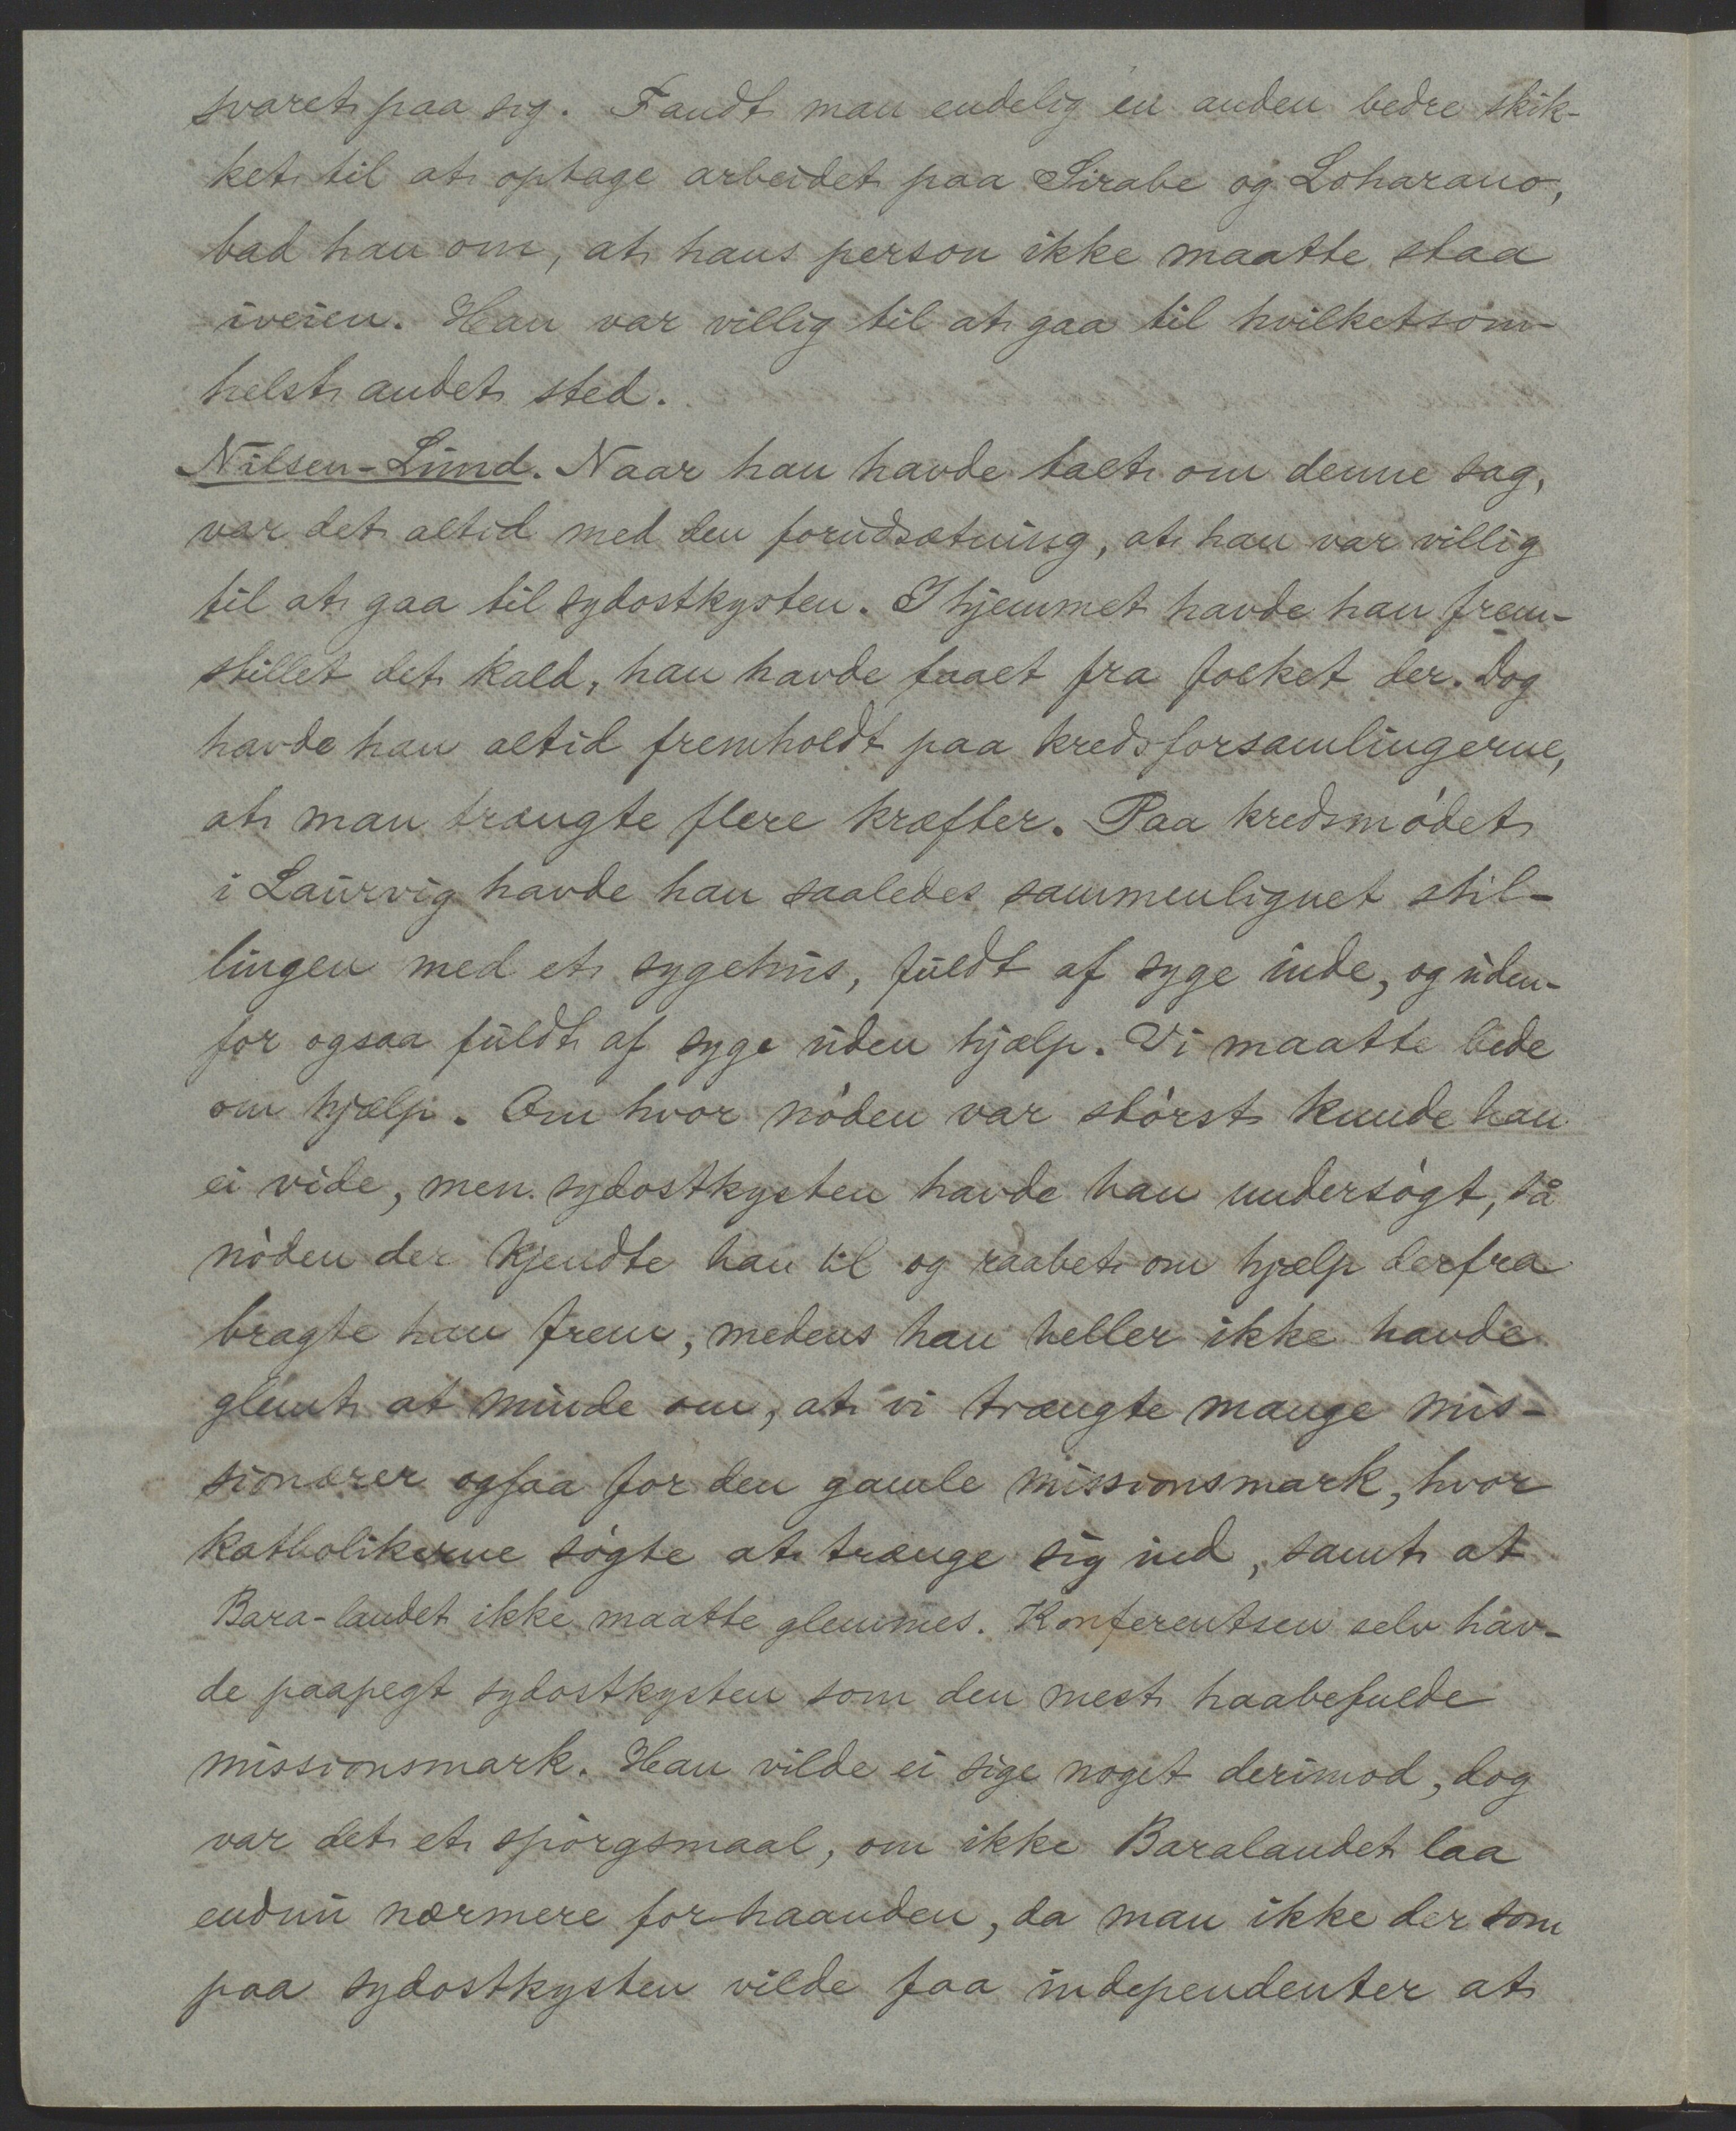 svaret paa sig. Fandt man endelig en anden bedre skik-
ket til at optage arbeidet paa Sirabe og Loharano,
bad han om, at hans person ikke maatte staa
iveien. Han var villig til at gaa til hvilketsom-
helst andet sted.
Nilsen-Lund. Naar han havde talt om denne sag,
var det altid med den forudsætning, at han var villig
til at gaa til sydostkysten. I hjemmet havde han frem-
stillet det kald, han havde faaet fra folket der. Dog
havde han altid fremholdt paa kredsforsamlingerne,
at man trængte flere kræfter. Paa kredsmødet
i Laurvig havde han saaledes sammenlignet stil-
lingen med et sygehus, fuldt af syge inde, og uden-
for ogsaa fuldt af syge uden hjælp. Vi maatte bede
om hjælp. Om hvor nøden var størst kunde han
ei vide, men sydostkysten havde han undersøgt, så
nøden der kjendte han til og raabet om hjælp derfra
bragte han frem, medens han heller ikke havde
glemt at minde om, at vi trængte mange mis-
sionærer ogsaa for den gamle missionsmark, hvor
katholikerne søgte at trænge sig ind, samt at
Bara-landet ikke maatte glemmes. Konferentsen selv hav-
de paapegt sydostkysten som den mest haabefulde
missionsmark. Han vilde ei sige noget derimod, dog
var det et spørgsmaal, om ikke Baralandet laa
endnu nærmere for haanden, da man ikke der som
paa sydostkysten vilde faa independenter at